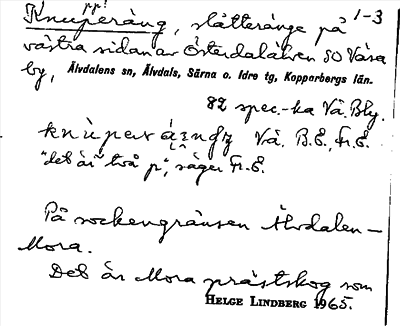 pp! 1-3
Knuperäng, slåtteränge på
västra sidan av Österdalälven SO Våsa
by, Älvdalens sn, Älvdals, Särna o. Idre tg, Kopparbergs län.
82 spec.-ka Vå. Bly.
knùperäŋndʒ Vå. B.E., Fr.E.
"det är två p", säger Fr.E.
På sockengränsen Älvdalen-
Mora.
Det är Mora prästskog som
HELGE LINDBERG 1965.